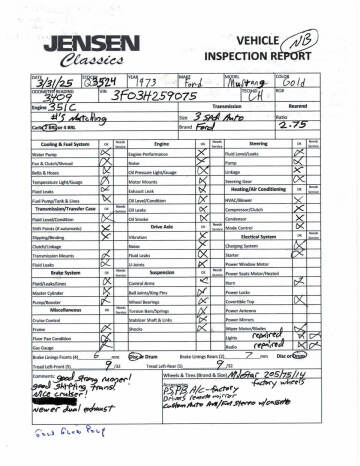 JENSEN
Classics
VEHICLE
INSPECTION REPORT
NB
DATE 3/31/25 STOCK# Q3524 YEAR 1973 MAKE Ford MODEL Mustang COLOR Gold
ODOMETER READING 3409 VIN 3F03H259075 TECH CH
Engine 351C Transmission Rearend
#'s Matching Size 3 spd Auto Ratio
Carb 2 BRL or 4 BRL Brand Ford 2.75
Cooling & Fuel System OK Needs Service Engine OK Needs Service Steering OK Needs Service
Water Pump Engine Performance Fluid Level/Leaks
Fan & Clutch/Shroud Noise Pump
Belts & Hoses Oil Pressure Light/Gauge Linkage
Temperature Light/Gauge Motor Mounts Steering Gear
Fluid Leaks Exhaust Leaks Heating/Air Conditioning OK Needs Service
Fuel Pump/Tank & Lines Oil Level/Condition HVAC/Blower
Transmission/Transfer Case OK Needs Service Oil Leaks Compressor/Clutch
Fluid Level/Condition Oil Smoke Condenser
Shift Points (if automatic) Drive Axle OK Needs Service Mode Control
Slipping/Binding Vibration Electrical System OK Needs Service
Clutch/Linkage Noise Charging System
Transmission Mounts Fluid Leaks Starter
Fluid Leaks U-Joints Power Window Motor
Brake System OK Needs Service Suspension OK Needs Service Power Seats Motor/Heated
Fluid/Leaks/Lines Control Arms Horn
Master Cylinder Ball Joints/King Pins Power Locks
Pump/Booster Wheel Bearings Covertible Top
Miscellaneous OK Needs Service Torsion Bars/Springs Power Antenna
Cruise Control Stabilizer Shaft & Links Power Mirrors
Frame Shocks Wiper Motor/Blades
Floor Pan Condition Lights repaired
Gas Gauge Radio repaired
Brake Lining Fronts (4) 6 mm Disc or Drum Brake Lining Rears (2) 7 mm Disc or Drum
Tread Left-Front (5) 9 /32 Tread Left-Rear (5) 9 /32
Comments: good strong motor! Wheels & Tires (Brand & Size) Milestar 205/75/14
good shifting trans! factory wheels
nice cruiser! PS PB A/C-factory
Drivers remote mirror
newer dual exhaust Custom Auto AM/FM Stereo w/cassette
Gold Glow Poly